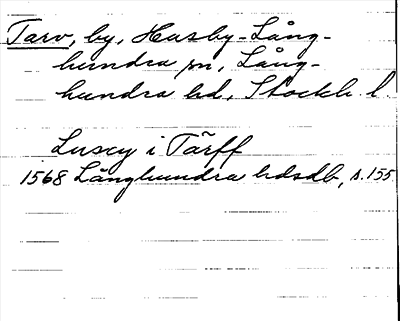 Tarv, by, Husby-Lång-
hundra sn, Lång-
hundra hd, Stockh. l.
Luscy i Tårff
1568 Långhundra hdsdb, s. 155